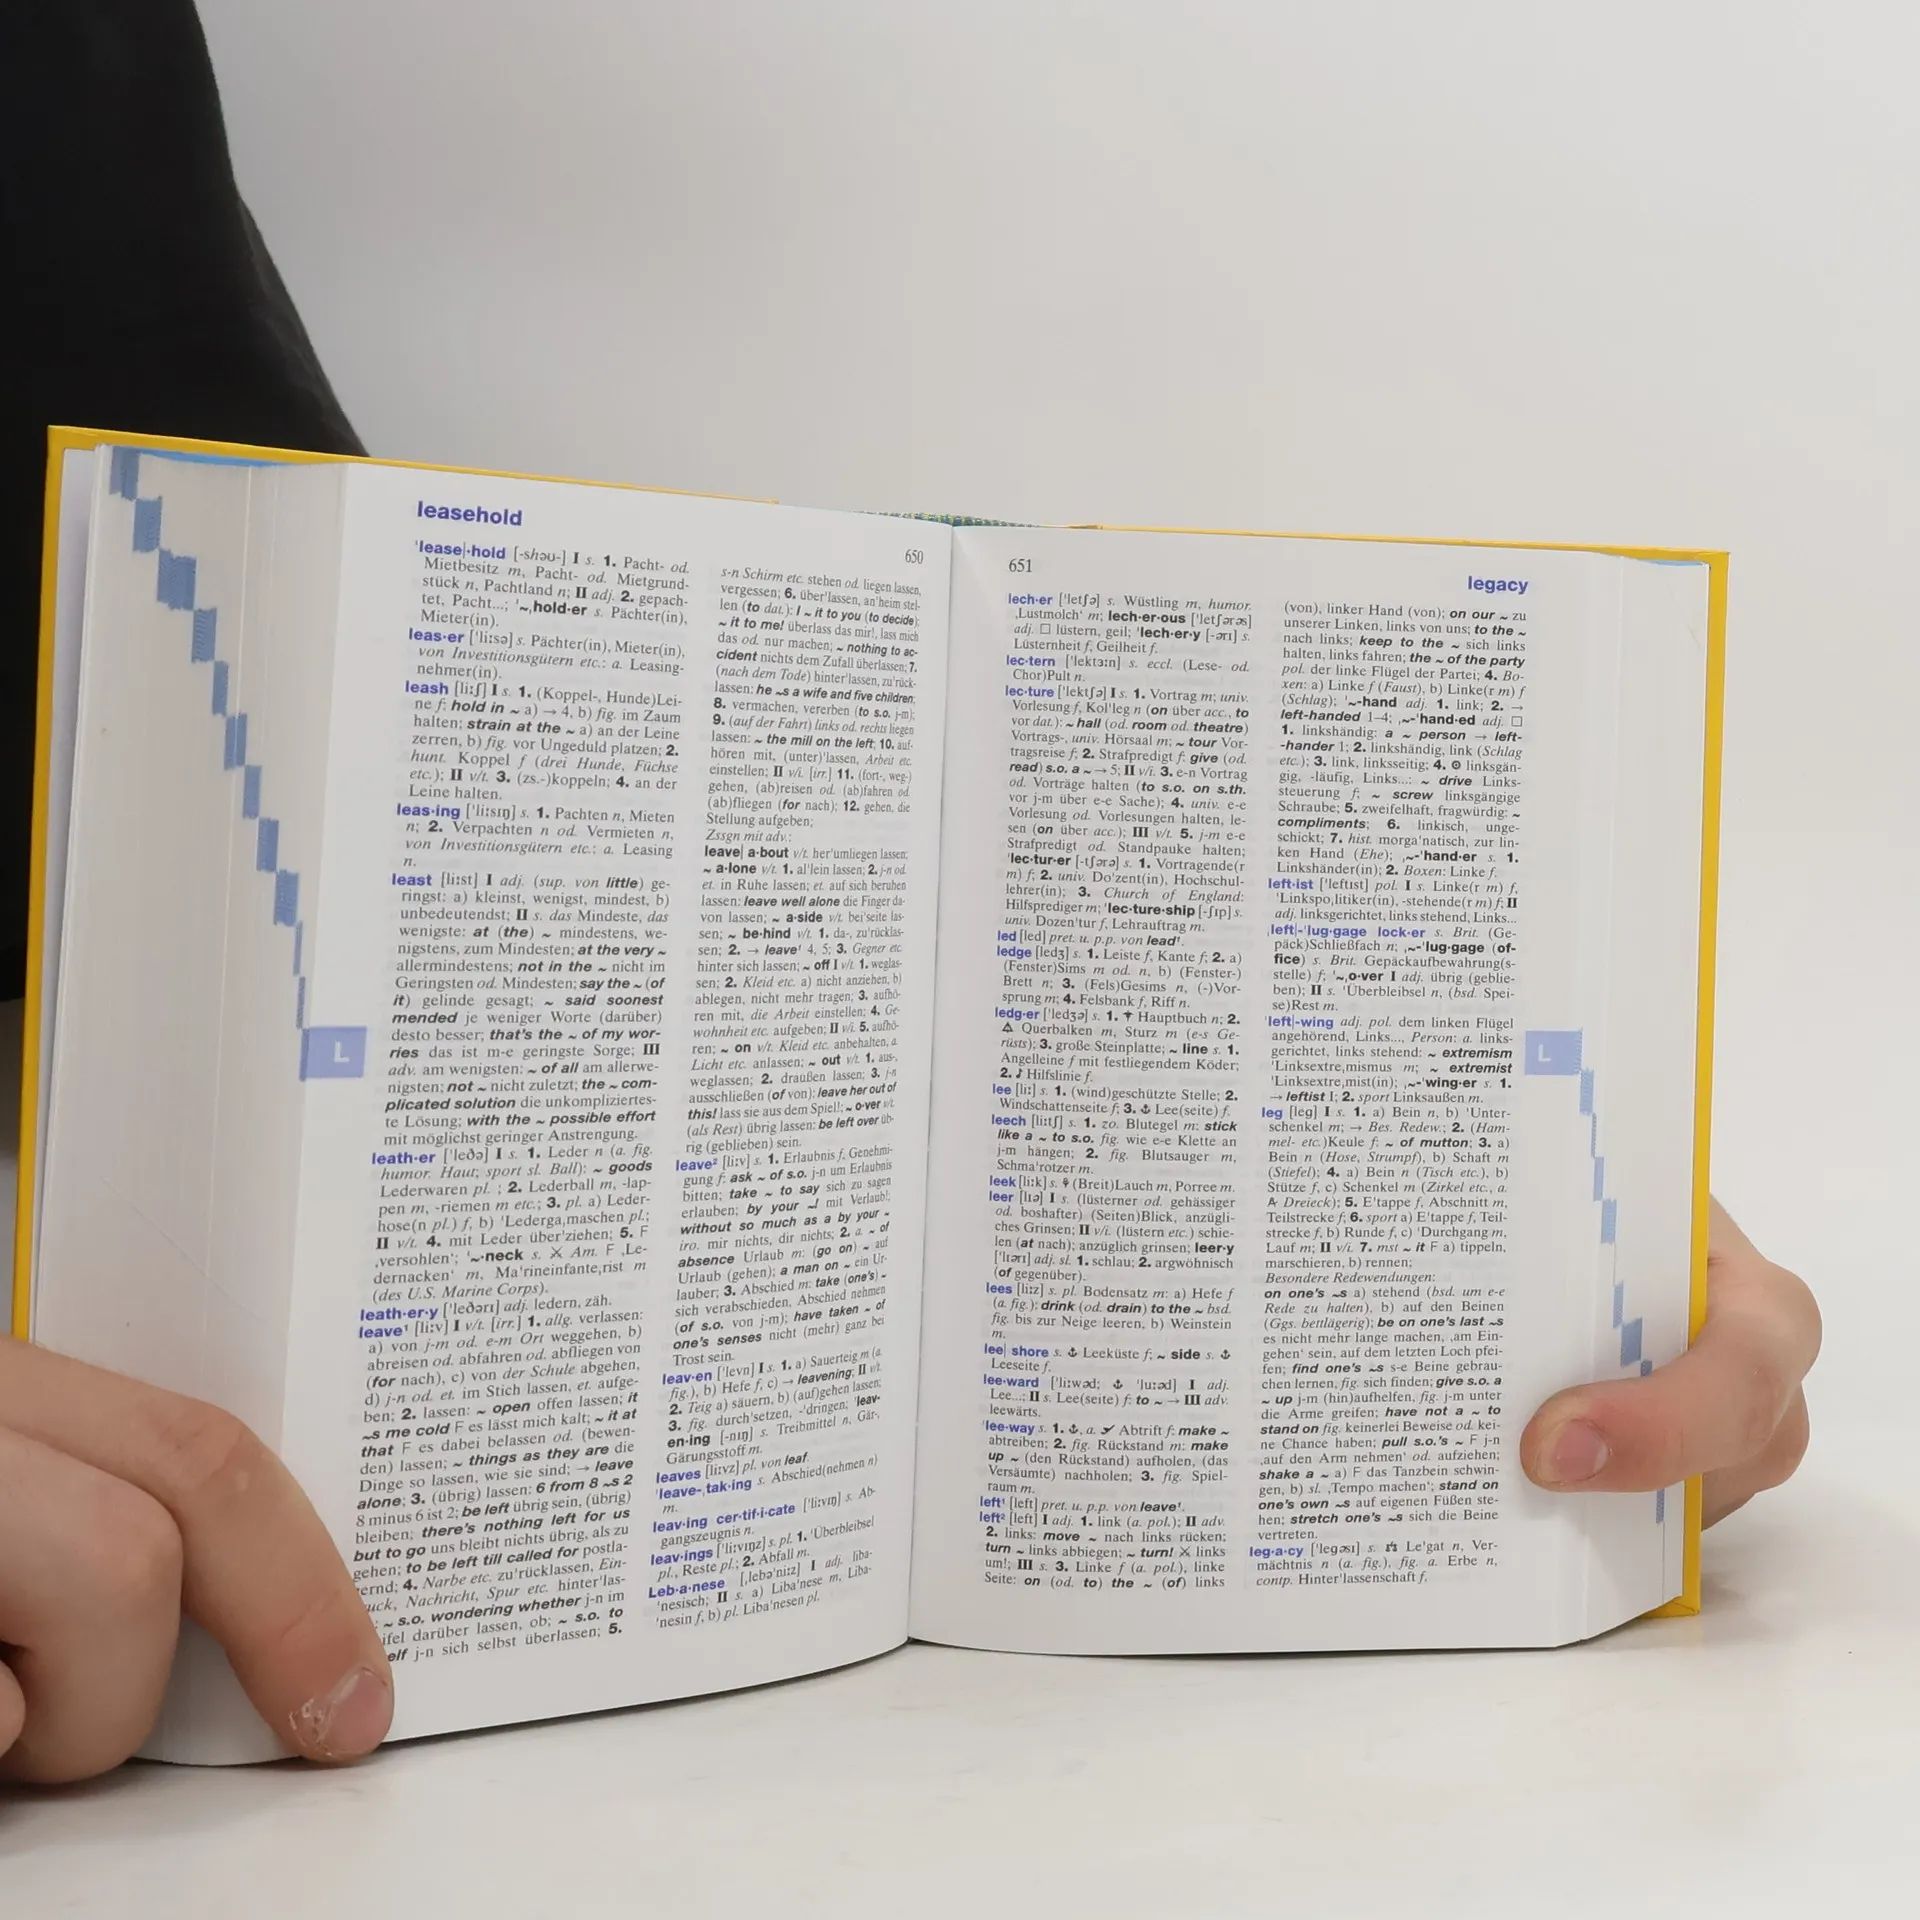 leasehold
650
'lease|·hold [-shəʊ-] I s. 1. Pacht- od.
Mietbesitz m, Pacht- od. Mietgrund-
stück n, Pachtland n; II adj. 2. gepach-
tet, Pacht...; '~ˌhold·er s. Pächter(in),
Mieter(in).
leas·er ['liːsə] s. Pächter(in), Mieter(in),
von Investitionsgütern etc.: a. Leasing-
nehmer(in).
leash [liːʃ] I s. 1. (Koppel-, Hunde)Lei-
ne f: hold in ~ a) → 4, b) fig. im Zaum
halten; strain at the ~ a) an der Leine
zerren, b) fig. vor Ungeduld platzen; 2.
hunt. Koppel f (drei Hunde, Füchse
etc.); II v/t. 3. (zs.-)koppeln; 4. an der
Leine halten.
leas·ing ['liːsɪŋ] s. 1. Pachten n, Mieten
n; 2. Verpachten n od. Vermieten n,
von Investitionsgütern etc.: a. Leasing
n.
least [liːst] I adj. (sup. von little) ge-
ringst: a) kleinst, wenigst, mindest, b)
unbedeutendst; II s. das Mindeste, das
wenigste: at (the) ~ mindestens, we-
nigstens, zum Mindesten; at the very ~
allermindestens; not in the ~ nicht im
Geringsten od. Mindesten; say the ~ (of
it) gelinde gesagt; ~ said soonest
mended je weniger Worte (darüber)
desto besser; that's the ~ of my wor-
ries das ist m-e geringste Sorge; III
adv. am wenigsten: ~ of all am allerwe-
nigsten; not ~ nicht zuletzt; the ~ com-
plicated solution die unkompliziertes-
te Lösung; with the ~ possible effort
mit möglichst geringer Anstrengung.
leath·er ['leðə] I s. 1. Leder n (a. fig.
humor. Haut; sport sl. Ball): ~ goods
Lederwaren pl.; 2. Lederball m, -lap-
pen m, -riemen m etc.; 3. pl. a) Leder-
hose(n pl.) f, b) 'Lederga,maschen pl.;
II v/t. 4. mit Leder über'ziehen; 5. F
‚versohlen'; '~·neck s. ⚔ Am. F ‚Le-
dernacken' m, Ma'rineinfante,rist m
(des U.S. Marine Corps).
leath·er·y ['leðərɪ] adj. ledern, zäh.
leave¹ [liːv] I v/t. [irr.] 1. allg. verlassen:
a) von j-m od. e-m Ort weggehen, b)
abreisen od. abfahren od. abfliegen von
(for nach), c) von der Schule abgehen,
d) j-n od. et. im Stich lassen, et. aufge-
ben; 2. lassen: ~ open offen lassen; it
~s me cold F es lässt mich kalt; ~ it at
that F es dabei belassen od. (bewen-
den) lassen; ~ things as they are die
Dinge so lassen, wie sie sind; → leave
alone; 3. (übrig) lassen: 6 from 8 ~s 2
8 minus 6 ist 2; be left übrig sein, (übrig)
bleiben; there's nothing left for us
but to go uns bleibt nichts übrig, als zu
gehen; to be left till called for postla-
gernd; 4. Narbe etc. zu'rücklassen, Ein-
uck, Nachricht, Spur etc. hinter'las-
; ~ s.o. wondering whether j-n im
ifel darüber lassen, ob; ~ s.o. to
elf j-n sich selbst überlassen; 5.
s-n Schirm etc. stehen od. liegen lassen,
vergessen; 6. über'lassen, an'heim stel-
len (to dat.): I ~ it to you (to decide);
~ it to me! überlass das mir!, lass mich
das od. nur machen; ~ nothing to ac-
cident nichts dem Zufall überlassen; 7.
(nach dem Tode) hinter'lassen, zu'rück-
lassen: he ~s a wife and five children;
8. vermachen, vererben (to s.o. j-m);
9. (auf der Fahrt) links od. rechts liegen
lassen: ~ the mill on the left; 10. auf-
hören mit, (unter)'lassen, Arbeit etc.
einstellen; II v/i. [irr.] 11. (fort-, weg-)
gehen, (ab)reisen od. (ab)fahren od.
(ab)fliegen (for nach); 12. gehen, die
Stellung aufgeben;
Zssgn mit adv.:
leave| a·bout v/t. her'umliegen lassen;
~ a·lone v/t. 1. al'lein lassen; 2. j-n od.
et. in Ruhe lassen; et. auf sich beruhen
lassen: leave well alone die Finger da-
von lassen; ~ a·side v/t. bei'seite las-
sen; ~ be·hind v/t. 1. da-, zu'rücklas-
sen; 2. → leave¹ 4, 5; 3. Gegner etc.
hinter sich lassen; ~ off I v/t. 1. weglas-
sen; 2. Kleid etc. a) nicht anziehen, b)
ablegen, nicht mehr tragen; 3. aufhö-
ren mit, die Arbeit einstellen; 4. Ge-
wohnheit etc. aufgeben; II v/i. 5. aufhö-
ren; ~ on v/t. Kleid etc. anbehalten, a.
Licht etc. anlassen; ~ out v/t. 1. aus-,
weglassen; 2. draußen lassen; 3. j-n
ausschließen (of von): leave her out of
this! lass sie aus dem Spiel!; ~ o·ver v/t.
(als Rest) übrig lassen: be left over üb-
rig (geblieben) sein.
leave² [liːv] s. 1. Erlaubnis f, Genehmi-
gung f: ask ~ of s.o. j-n um Erlaubnis
bitten; take ~ to say sich zu sagen
erlauben; by your ~! mit Verlaub!;
without so much as a by your ~
iro. mir nichts, dir nichts; 2. a. ~ of
absence Urlaub m: (go on) ~ auf
Urlaub (gehen); a man on ~ ein Ur-
lauber; 3. Abschied m: take (one's) ~
sich verabschieden, Abschied nehmen
(of s.o. von j-m); have taken ~ of
one's senses nicht (mehr) ganz bei
Trost sein.
leav·en ['levn] I s. 1. a) Sauerteig m (a.
fig.), b) Hefe f, c) → leavening; II v/t.
2. Teig a) säuern, b) (auf)gehen lassen;
3. fig. durch'setzen, -'dringen; 'leav-
en·ing [-nɪŋ] s. Treibmittel n, Gär-,
Gärungsstoff m.
leaves [liːvz] pl. von leaf.
'leave-ˌtak·ing s. Abschied(nehmen n)
m.
leav·ing cer·tif·i·cate ['liːvɪŋ] s. Ab-
gangszeugnis n.
leav·ings ['liːvɪŋz] s. pl. 1. 'Überbleibsel
pl., Reste pl.; 2. Abfall m.
Leb·a·nese [ˌlebə'niːz] I adj. liba-
'nesisch; II s. a) Liba'nese m, Liba-
'nesin f, b) pl. Liba'nesen pl.
L
651
legacy
lech·er ['letʃə] s. Wüstling m, humor.
‚Lustmolch' m; lech·er·ous ['letʃərəs]
adj. □ lüstern, geil; 'lech·er·y [-ərɪ] s.
Lüsternheit f, Geilheit f.
lec·tern ['lektɜːn] s. eccl. (Lese- od.
Chor)Pult n.
lec·ture ['lektʃə] I s. 1. Vortrag m; univ.
Vorlesung f, Kol'leg n (on über acc., to
vor dat.): ~ hall (od. room od. theatre)
Vortrags-, univ. Hörsaal m; ~ tour Vor-
tragsreise f; 2. Strafpredigt f: give (od.
read) s.o. a ~ → 5; II v/i. 3. e-n Vortrag
od. Vorträge halten (to s.o. on s.th.
vor j-m über e-e Sache); 4. univ. e-e
Vorlesung od. Vorlesungen halten, le-
sen (on über acc.); III v/t. 5. j-m e-e
Strafpredigt od. Standpauke halten;
'lec·tur·er [-tʃərə] s. 1. Vortragende(r
m) f; 2. univ. Do'zent(in), Hochschul-
lehrer(in); 3. Church of England:
Hilfsprediger m; 'lec·ture·ship [-ʃɪp] s.
univ. Dozen'tur f, Lehrauftrag m.
led [led] pret. u. p.p. von lead¹.
ledge [ledʒ] s. 1. Leiste f, Kante f; 2. a)
(Fenster)Sims m od. n, b) (Fenster-)
Brett n; 3. (Fels)Gesims n, (-)Vor-
sprung m; 4. Felsbank f, Riff n.
ledg·er ['ledʒə] s. 1. ✝ Hauptbuch n; 2.
△ Querbalken m, Sturz m (e-s Ge-
rüsts); 3. große Steinplatte; ~ line s. 1.
Angelleine f mit festliegendem Köder;
2. ♪ Hilfslinie f.
lee [liː] s. 1. (wind)geschützte Stelle; 2.
Windschattenseite f; 3. ⚓ Lee(seite) f.
leech [liːtʃ] s. 1. zo. Blutegel m: stick
like a ~ to s.o. fig. wie e-e Klette an
j-m hängen; 2. fig. Blutsauger m,
Schma'rotzer m.
leek [liːk] s. ⚘ (Breit)Lauch m, Porree m.
leer [lɪə] I s. (lüsterner od. gehässiger
od. boshafter) (Seiten)Blick, anzügli-
ches Grinsen; II v/i. (lüstern etc.) schie-
len (at nach); anzüglich grinsen; leer·y
['lɪərɪ] adj. sl. 1. schlau; 2. argwöhnisch
(of gegenüber).
lees [liːz] s. pl. Bodensatz m: a) Hefe f
(a. fig.): drink (od. drain) to the ~ bsd.
fig. bis zur Neige leeren, b) Weinstein
m.
lee| shore s. ⚓ Leeküste f; ~ side s. ⚓
Leeseite f.
lee·ward ['liːwəd; ⚓ 'luːəd] I adj.
Lee...; II s. Lee(seite) f: to ~ → III adv.
leewärts.
'lee·way s. 1. ⚓, a. ✈ Abtrift f: make ~
abtreiben; 2. fig. Rückstand m: make
up ~ (den Rückstand) aufholen, (das
Versäumte) nachholen; 3. fig. Spiel-
raum m.
left¹ [left] pret. u. p.p. von leave¹.
left² [left] I adj. 1. link (a. pol.); II adv.
2. links: move ~ nach links rücken;
turn ~ links abbiegen; ~ turn! ⚔ links
um!; III s. 3. Linke f (a. pol.), linke
Seite: on (od. to) the ~ (of) links
(von), linker Hand (von); on our ~ zu
unserer Linken, links von uns; to the ~
nach links; keep to the ~ sich links
halten, links fahren; the ~ of the party
pol. der linke Flügel der Partei; 4. Bo-
xen: a) Linke f (Faust), b) Linke(r m) f
(Schlag); '~-hand adj. 1. link; 2. →
left-handed 1–4; ˌ~-'hand·ed adj. □
1. linkshändig: a ~ person → left-
-hander 1; 2. linkshändig, link (Schlag
etc.); 3. link, linksseitig; 4. ⚙ linksgän-
gig, -läufig, Links...: ~ drive Links-
steuerung f; ~ screw linksgängige
Schraube; 5. zweifelhaft, fragwürdig: ~
compliments; 6. linkisch, unge-
schickt; 7. hist. morga'natisch, zur lin-
ken Hand (Ehe); ˌ~-'hand·er s. 1.
Linkshänder(in); 2. Boxen: Linke f.
left·ist ['leftɪst] pol. I s. Linke(r m) f,
'Linkspo,litiker(in), -stehende(r m) f; II
adj. linksgerichtet, links stehend, Links...
ˌleft|-'lug·gage lock·er s. Brit. (Ge-
päck)Schließfach n; ˌ~-'lug·gage (of-
fice) s. Brit. Gepäckaufbewahrung(s-
stelle) f; '~ˌo·ver I adj. übrig (geblie-
ben); II s. 'Überbleibsel n, (bsd. Spei-
se)Rest m.
'left|-wing adj. pol. dem linken Flügel
angehörend, Links..., Person: a. links-
gerichtet, links stehend: ~ extremism
'Linksextre,mismus m; ~ extremist
'Linksextre,mist(in); ˌ~-'wing·er s. 1.
→ leftist I; 2. sport Linksaußen m.
leg [leg] I s. 1. a) Bein n, b) 'Unter-
schenkel m; → Bes. Redew.; 2. (Ham-
mel- etc.)Keule f: ~ of mutton; 3. a)
Bein n (Hose, Strumpf), b) Schaft m
(Stiefel); 4. a) Bein n (Tisch etc.), b)
Stütze f, c) Schenkel m (Zirkel etc., a.
Å Dreieck); 5. E'tappe f, Abschnitt m,
Teilstrecke f; 6. sport a) E'tappe f, Teil-
strecke f, b) Runde f, c) 'Durchgang m,
Lauf m; II v/i. 7. mst ~ it F a) tippeln,
marschieren, b) rennen;
Besondere Redewendungen:
on one's ~s a) stehend (bsd. um e-e
Rede zu halten), b) auf den Beinen
(Ggs. bettlägerig); be on one's last ~s
es nicht mehr lange machen, ‚am Ein-
gehen' sein, auf dem letzten Loch pfei-
fen; find one's ~s s-e Beine gebrau-
chen lernen, fig. sich finden; give s.o. a
~ up j-m (hin)aufhelfen, fig. j-m unter
die Arme greifen; have not a ~ to
stand on fig. keinerlei Beweise od. kei-
ne Chance haben; pull s.o.'s ~ F j-n
‚auf den Arm nehmen' od. aufziehen;
shake a ~ a) F das Tanzbein schwin-
gen, b) sl. ‚Tempo machen'; stand on
one's own ~s auf eigenen Füßen ste-
hen; stretch one's ~s sich die Beine
vertreten.
leg·a·cy ['legəsɪ] s. ⚖ Le'gat n, Ver-
mächtnis n (a. fig.), fig. a. Erbe n,
contp. Hinter'lassenschaft f.
L